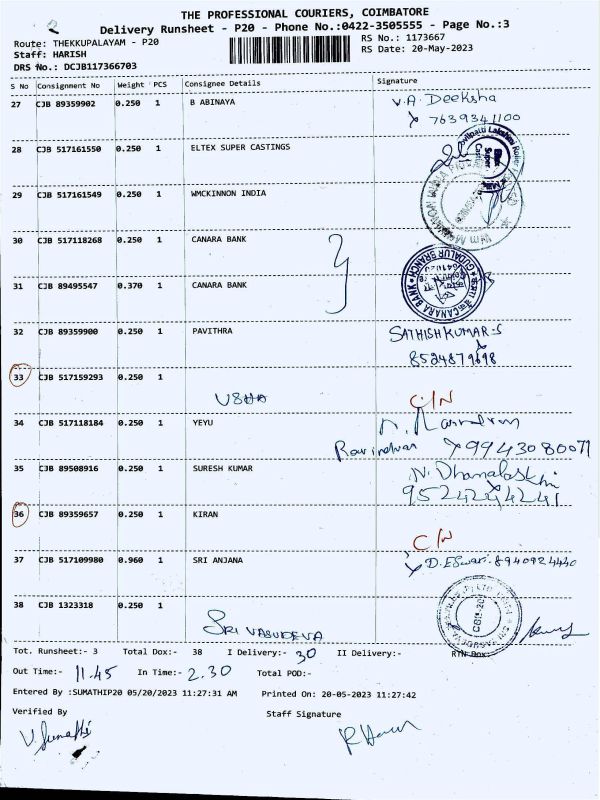 2
THE PROFESSIONAL COURIERS, COIMBATORE
Delivery Runsheet - P20 - Phone No.:0422-3505555 - Page No.:3
Route: THEKKUPALAYAM - P20
RS No.: 1173667
Staff: HARISH
RS Date: 20-May-2023
DRS No.: DCJB117366703
S No Consignment No Weight PCS Consignee Details Signature
27 CJB 89359902 0.250 1 B ABINAYA V.A Deeksha
7639341100
28 CJB 517161550 0.250 1 ELTEX SUPER CASTINGS
29 CJB 517161549 0.250 1 WMCKINNON INDIA
30 CJB 517118268 0.250 1 CANARA BANK
31 CJB 89495547 0.370 1 CANARA BANK
CANARA BANK GUDALUR BRANCH
32 CJB 89359900 0.250 1 PAVITHRA SATHISHKUMAR-S
8524879698
33 CJB 517159293 0.250 1
USHA C/N
34 CJB 517118184 0.250 1 YEYU
Ravindran 9943080071
35 CJB 89508916 0.250 1 SURESH KUMAR N. Dhanalakshmi
36 CJB 89359657 0.250 1 KIRAN
C/N
37 CJB 517109980 0.960 1 SRI ANJANA D.ESwari.8940924440
38 CJB 1323318 0.250 1
SRI VASUDEVA
Tot. Runsheet:- 3 Total Dox:- 38 I Delivery:- 30 II Delivery:- RTN Dox:
Out Time:- 11.45 In Time:- 2.30 Total POD:-
Entered By :SUMATHIP20 05/20/2023 11:27:31 AM Printed On: 20-05-2023 11:27:42
Verified By Staff Signature
V. Sumathi